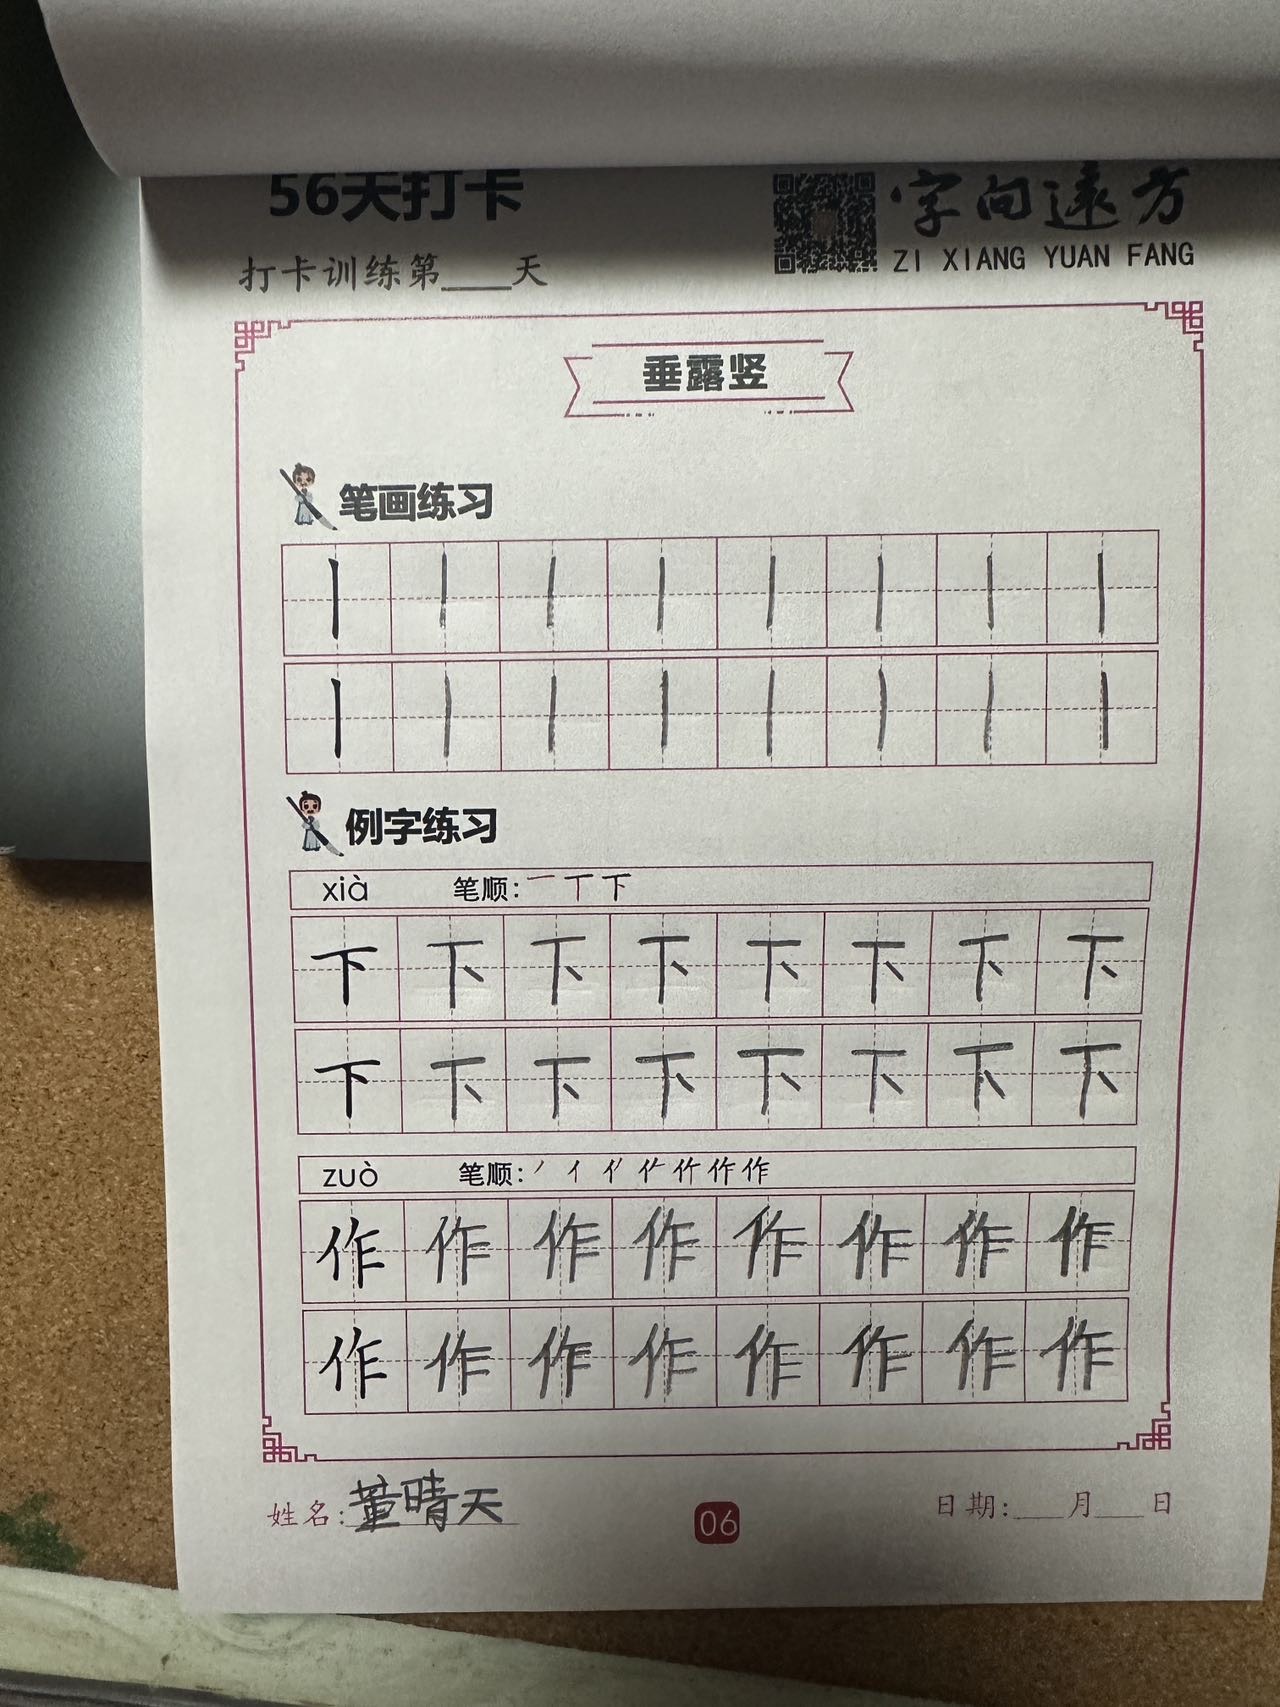 56天打卡
字向远方
ZI XIANG YUAN FANG
打卡训练第____天
垂露竖
笔画练习
丨丨丨丨丨丨丨丨
丨丨丨丨丨丨丨丨
例字练习
xià 笔顺：一丅下
下下下下下下下下
下下下下下下下下
zuò 笔顺：丿亻作
作作作作作作作作
作作作作作作作作
姓名：董晴天
06
日期：___月___日